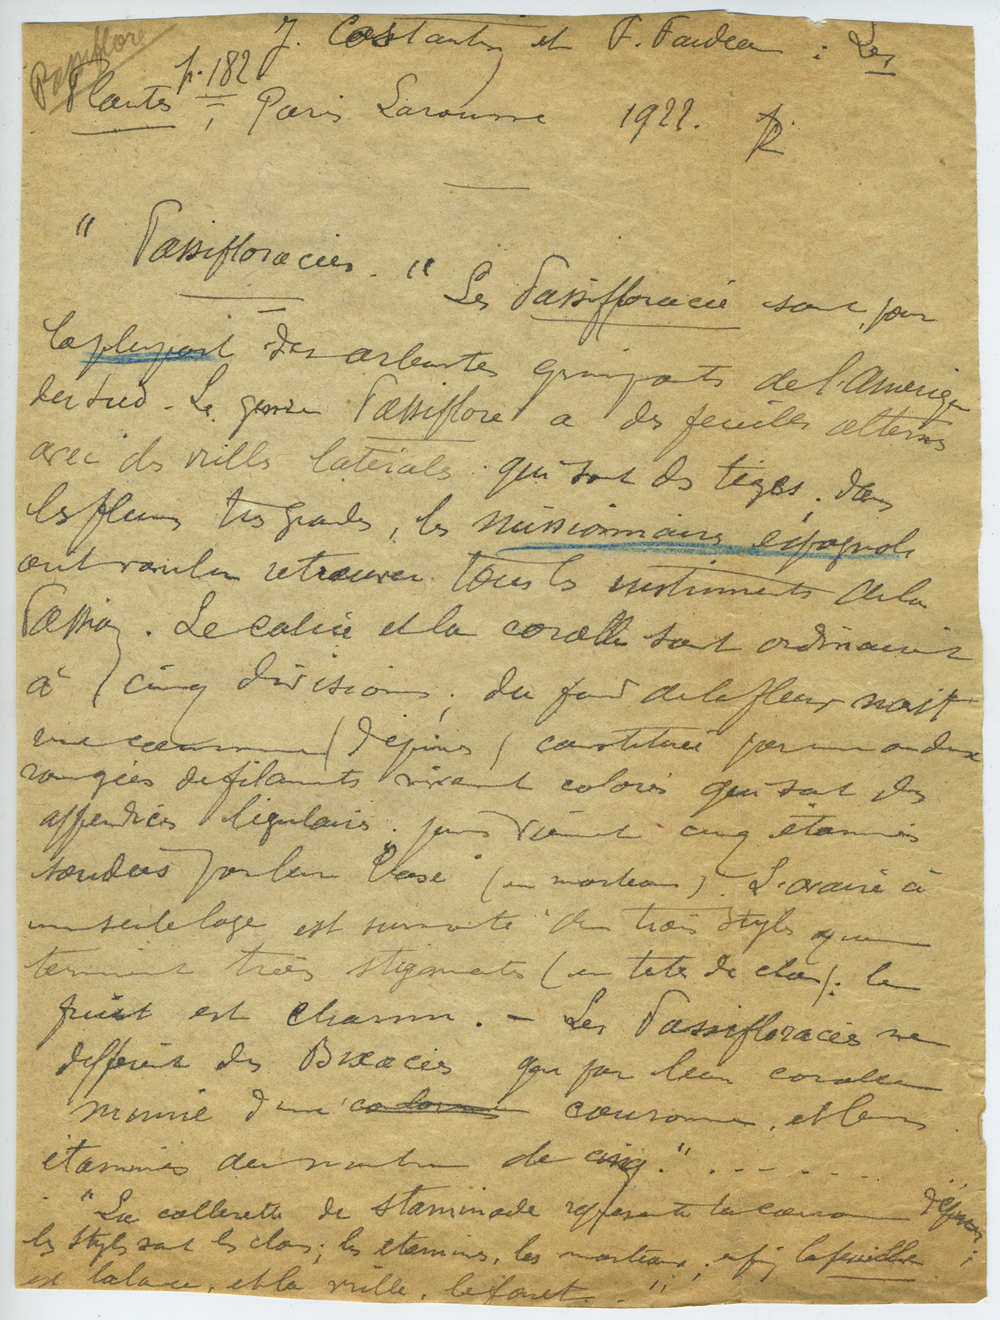 Passiflore
J. Costantin et F. Faideau : Les
Plantes p. 182, Paris Larousse 1922.
" Passifloracées. " Les Passifloracée sont, pour
la plupart des arbustes grimpants de l'Amérique
du Sud - Le genre Passiflore a des feuilles alternes
avec des vrilles latérales qui sont des tiges. Dans
les fleurs très grandes, les missionnaires espagnols
ont voulu retrouver tous les instruments de la
Passion. Le calice et la corolle sont ordinairement
à cinq divisions, du fond de la fleur naît
une couronne (d'épines) constituée par une ou deux
rangées de filaments vivement colorés qui sont des
appendices ligulaires. puis viennent cinq étamines
soudées par leur base (en marteau). L'ovaire à
une seule loge est surmonté de trois styles que
terminent trois stigmates (en tete de clou) : le
fruit est charnu. - Les Passifloracées ne
diffèrent des Bixacées que par leur corolle
munie d'une couronne, et leurs
étamines au nombre de cinq." . . . . .
"La collerette de staminode représente la couronne d'épines ;
les styles sont les clous ; les étamines, les marteaux ; enfin la feuille
est la lance, et la vrille, le fouet. "